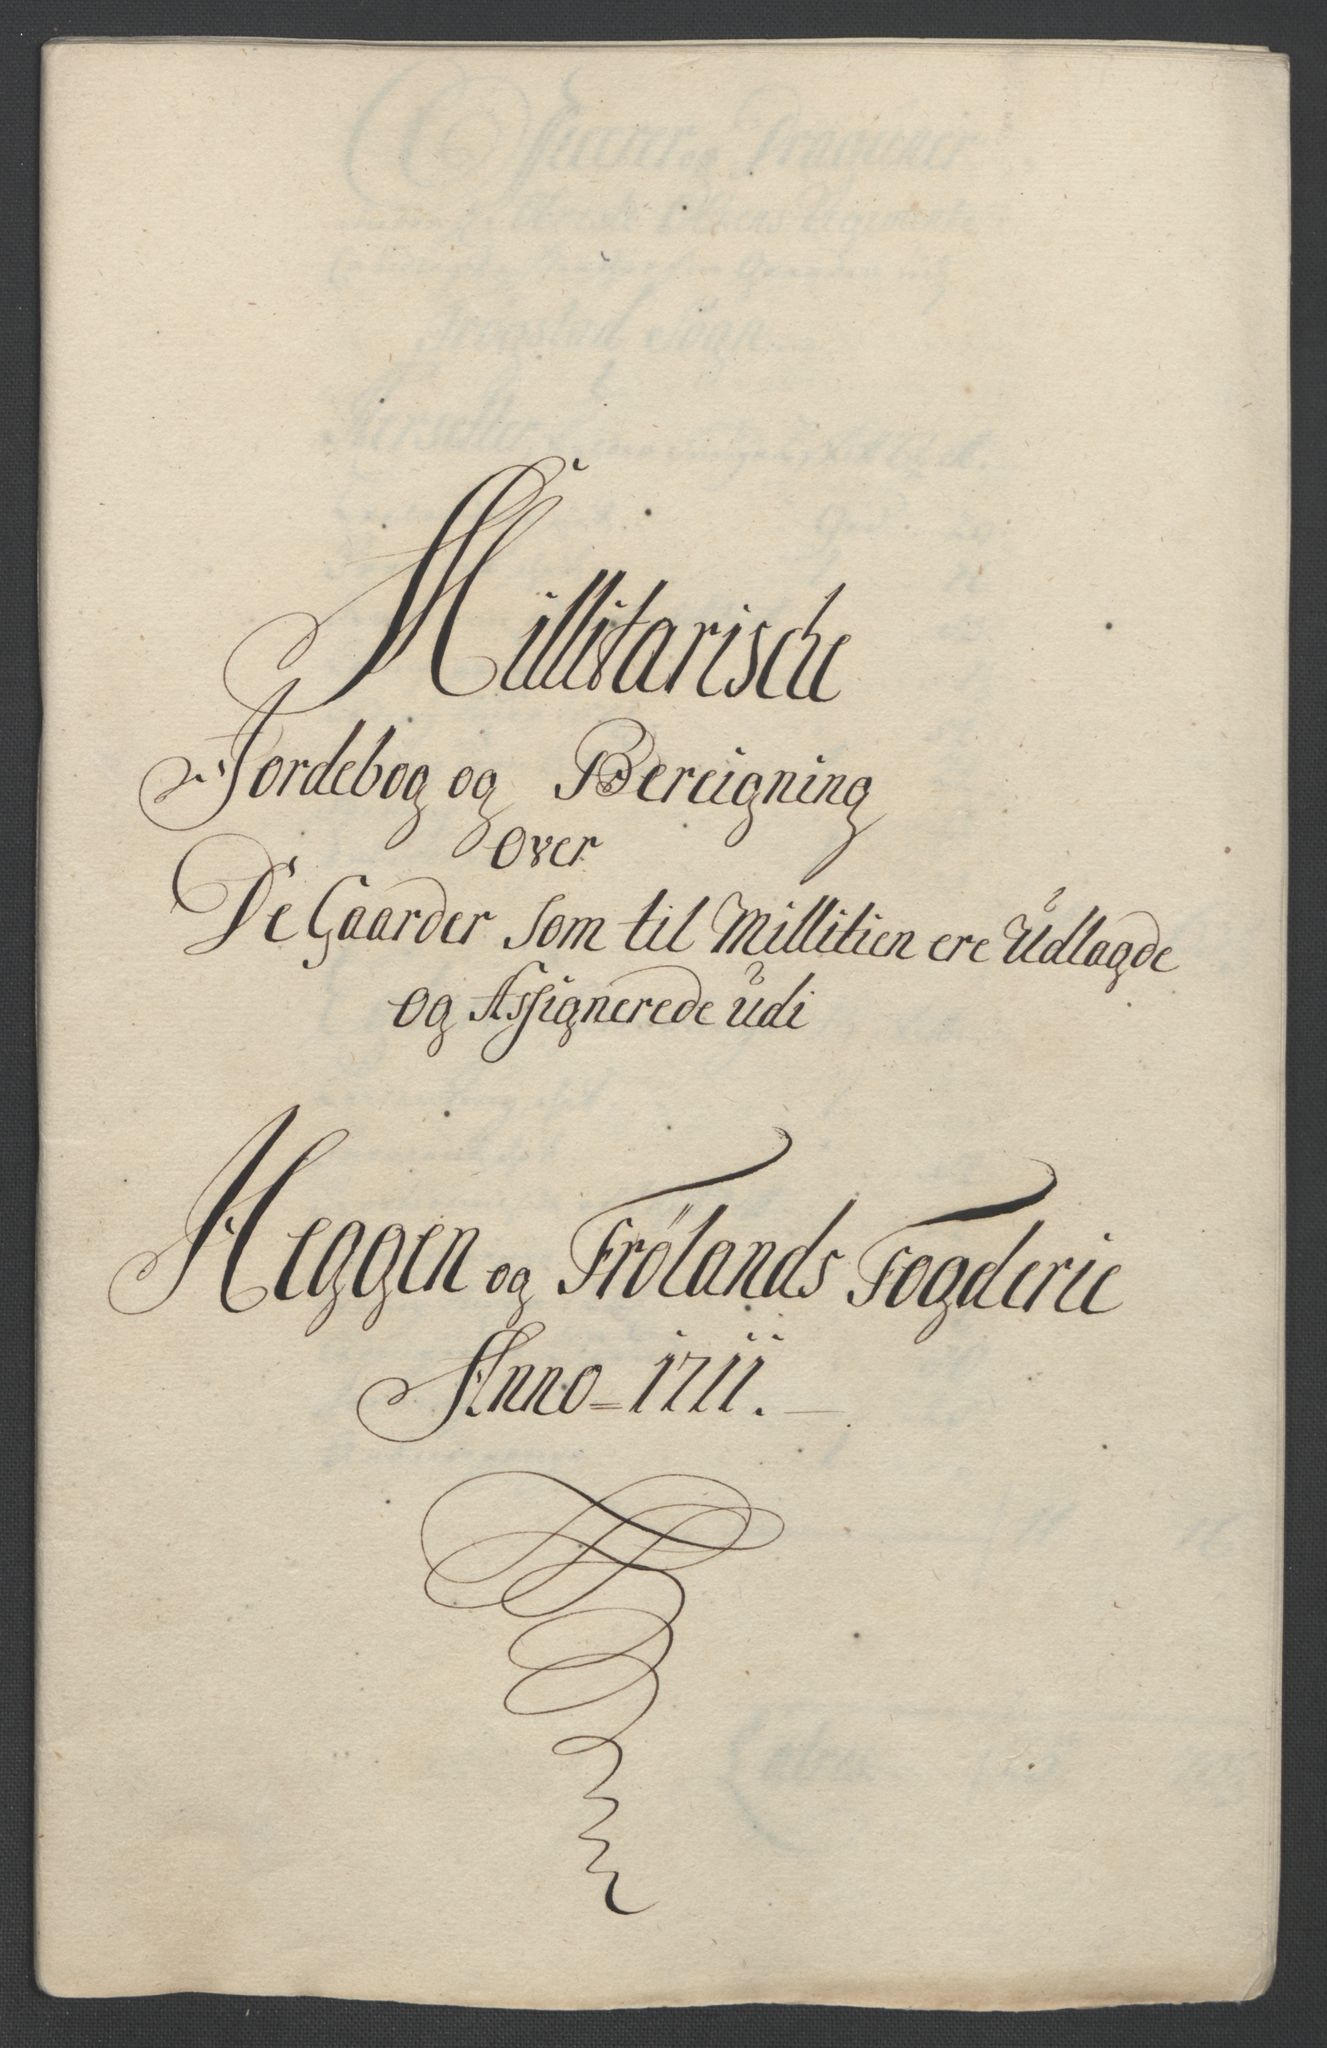 Millitarische
Jordebog og Bereigning
Over
De Gaarder som til Millitien ere Udlagde
og Assignerede udi
Heggen og Frölands Fogderie
Anno = 1711.